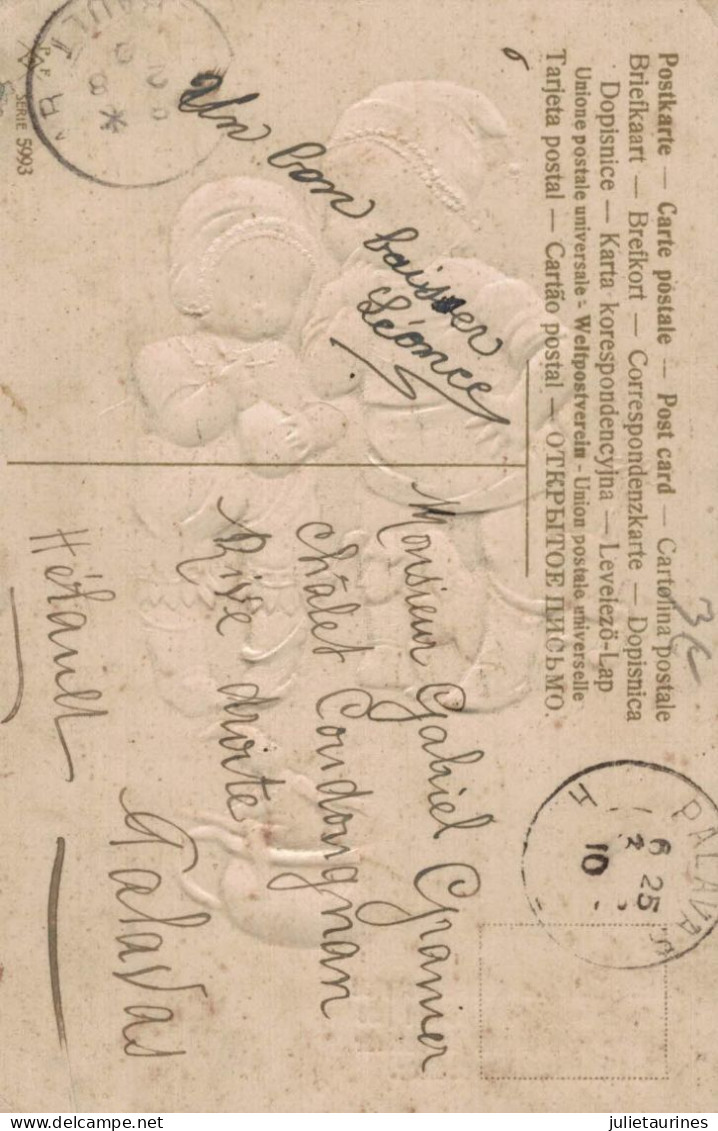 Postkarte — Carte postale — Post card — Cartolina postale
Briefkaart — Brefkort — Correspondenzkarte — Dopisnica
Dopisnice — Karta korespondencyjna — Levelező-Lap
Unione postale universale - Weltpostverein - Union postale universelle
Tarjeta postal — Cartão postal — ОТКРЫТОЕ ПИСЬМО.
SERIE 5993
Un bon baiser
Léonce
3€
PALAVAS
6 25
10
Monsieur Gabriel Granier
châlet Coudougnan
Rive droite
Palavas
Hérault
julietaurines